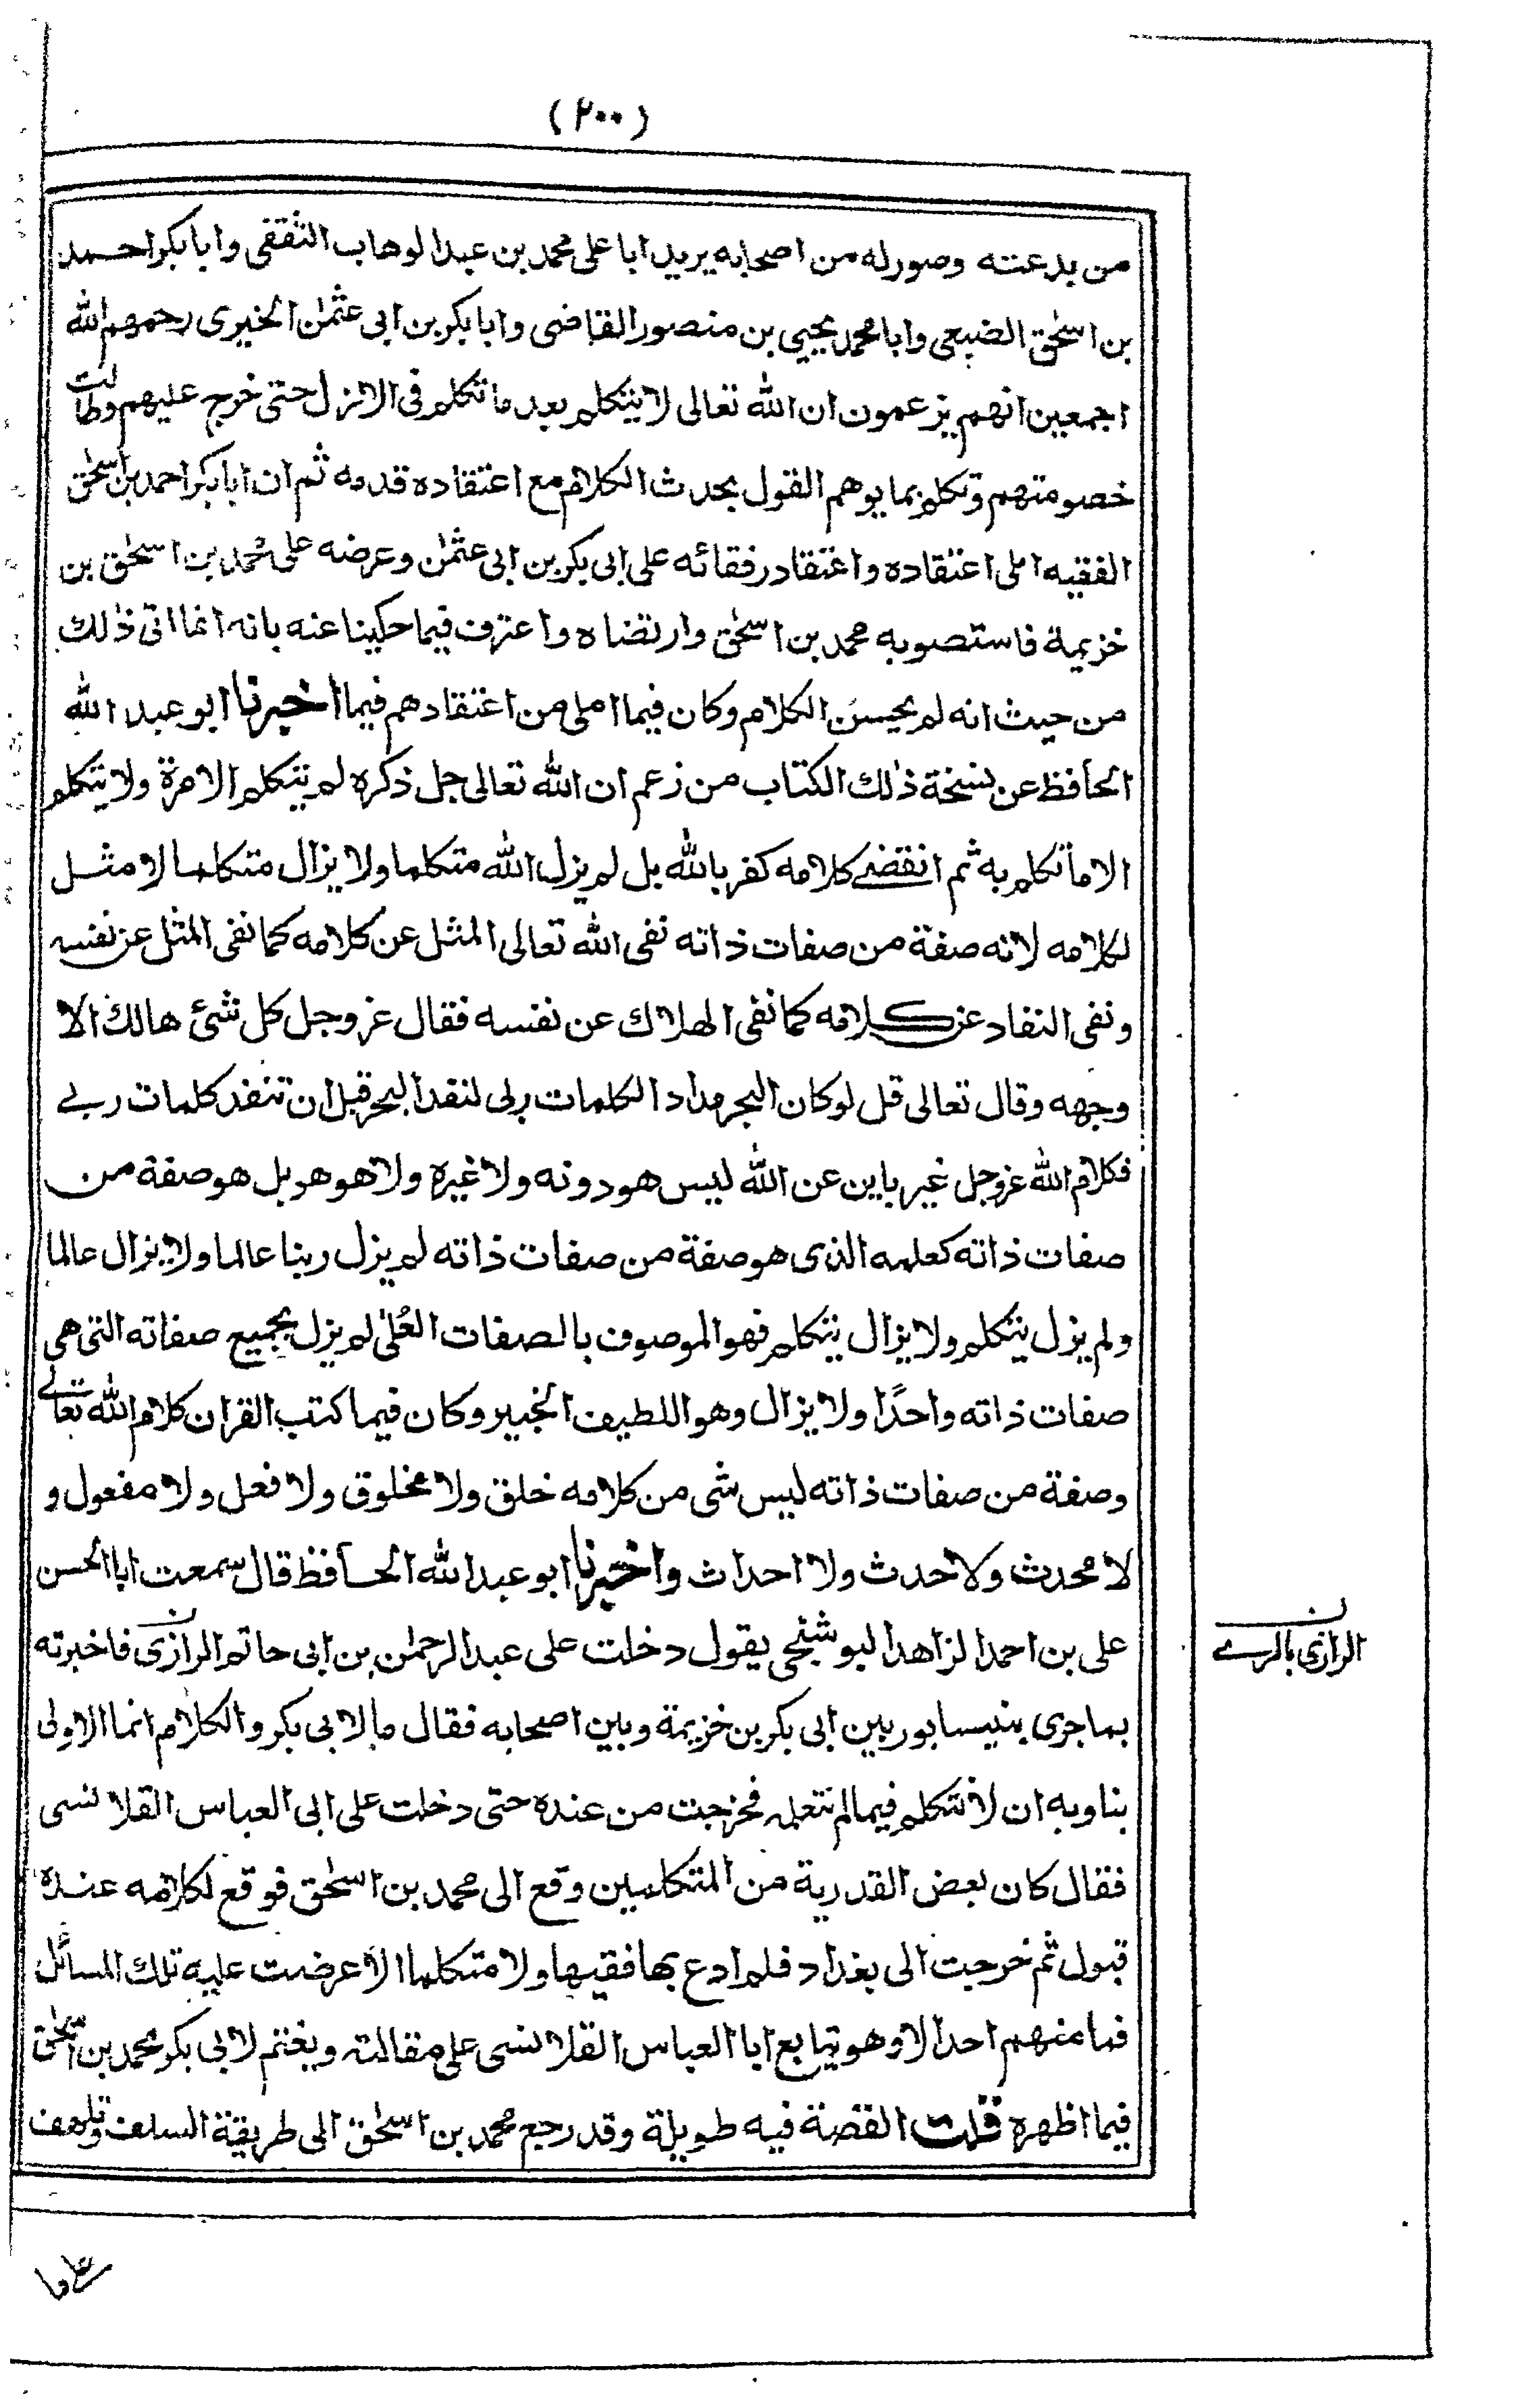 (٢٠٠)
من بدعته وصور له من اصحابه يريد ابا على محمد بن عبد الوهاب الثقفى وابا بكر احمد
بن اسحٰق الضبعى وابا محمد يحيى بن منصور القاضى وابا بكر بن ابى عثمٰن الحيرى رحمهم الله
اجمعين انهم يزعمون ان الله تعالى لا يتكلم بعد ما تكلم فى الازل حتى خرج عليهم وطالت
خصومتهم وتكلم بما يوهم القول بحدث الكلام مع اعتقاده قدمه ثم ان ابا بكر احمد بن اسحٰق
الفقيه املى اعتقاده واعتقاد رفقائه على ابى بكر بن ابى عثمٰن وعرضه على محمد بن اسحٰق بن
خزيمة فاستصوبه محمد بن اسحٰق وارتضاه واعترف فيما حكينا عنه بانه انما اتى ذٰلك
من حيث انه لم يحسن الكلام وكان فيما املى من اعتقادهم فيما اخبرنا ابو عبد الله
الحافظ عن نسخة ذٰلك الكتاب من زعم ان الله تعالى جل ذكره لم يتكلم الا مرة ولا يتكلم
الا ما تكلم به ثم انقضى كلامه كفر بالله بل لم يزل الله متكلما ولا يزال متكلما لا مثل
لكلامه لانه صفة من صفات ذاته نفى الله تعالى المثل عن كلامه كما نفى المثل عن نفسه
ونفى النفاد عن كلامه كما نفى الهلاك عن نفسه فقال عز وجل كل شئ هالك الا
وجهه وقال تعالى قل لو كان البحر مدادا لكلمات ربى لنفد البحر قبل ان تنفد كلمات ربى
فكلام الله عز وجل غير باين عن الله ليس هو دونه ولا غيره ولا هو هو بل هو صفة من
صفات ذاته كعلمه الذى هو صفة من صفات ذاته لم يزل ربنا عالما ولا يزال عالما
ولم يزل يتكلم ولا يزال يتكلم فهو الموصوف بالصفات العُلى لم يزل بجميع صفاته التى هى
صفات ذاته واحدًا ولا يزال وهو اللطيف الخبير وكان فيما كتب القران كلام الله تعالى
وصفة من صفات ذاته ليس شى من كلامه خلق ولا مخلوق ولا فعل ولا مفعول و
لا محدث ولا حدث ولا احداث واخبرنا ابو عبد الله الحافظ قال سمعت ابا الحسن
على بن احمد الزاهد البوشنجى يقول دخلت على عبد الرحمٰن بن ابى حاتم الرازى فاخبرته
الرازى بالرى
بما جرى بنيسابور بين ابى بكر بن خزيمة وبين اصحابه فقال ما لابى بكر والكلام انما الاولى
بنا وبه ان لا نتكلم فيما لم نتعلمه فخرجت من عنده حتى دخلت على ابى العباس القلانسى
فقال كان بعض القدرية من المتكلمين وقع الى محمد بن اسحٰق فوقع لكلامه عنده
قبول ثم خرجت الى بغداد فلم ادع بها فقيها ولا متكلما الا عرضت عليه تلك المسائل
فما منهم احد الا وهو يتابع ابا العباس القلانسى على مقالته ويغتم لابى بكر محمد بن اسحٰق
فيما اظهره قلت القصة فيه طويلة وقد رجع محمد بن اسحٰق الى طريقة السلف وتلهف